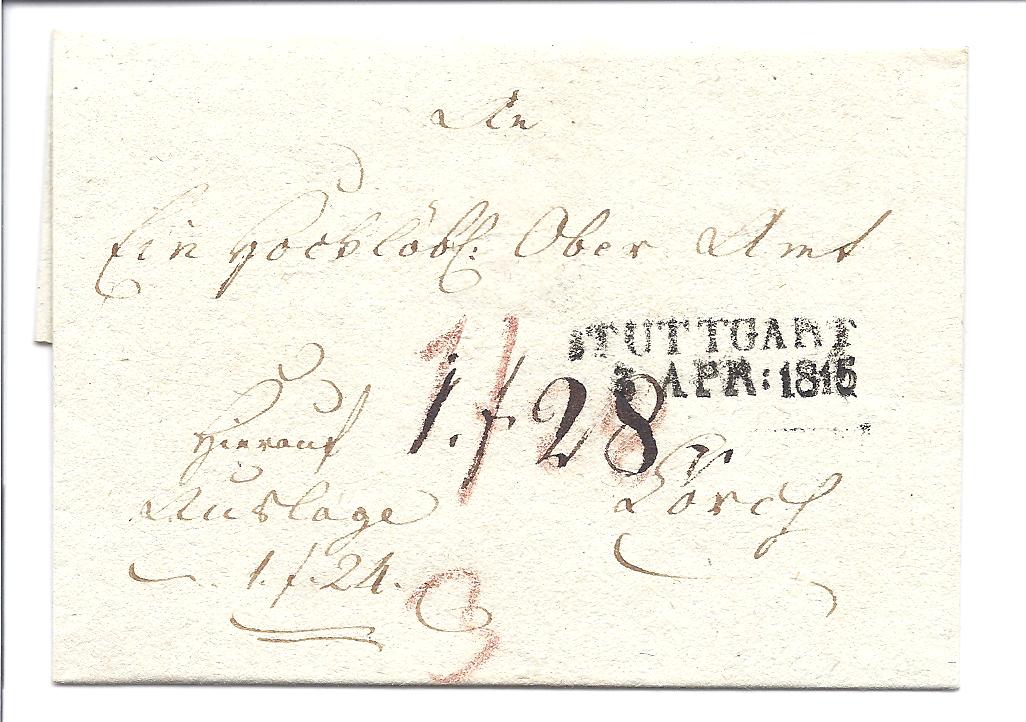 An
Ein Hochlöbl: Ober Amt
STUTTGART
APR: 1816
1.f 28
Hierauf
Auslage
1.f.24.
Lorch
3